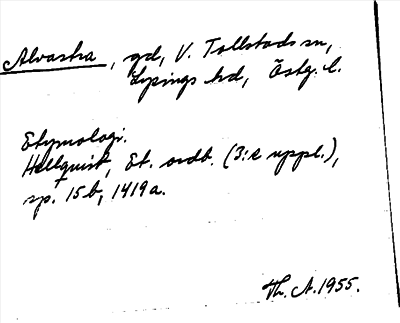 Alvastra, gd, V. Tollstads sn,
Lysings hd, Östg. l.
Etymologi.
Hellquist, Et. ordb. (3:e uppl.),
sp. 15 b, 1419 a.
Th. A. 1955.